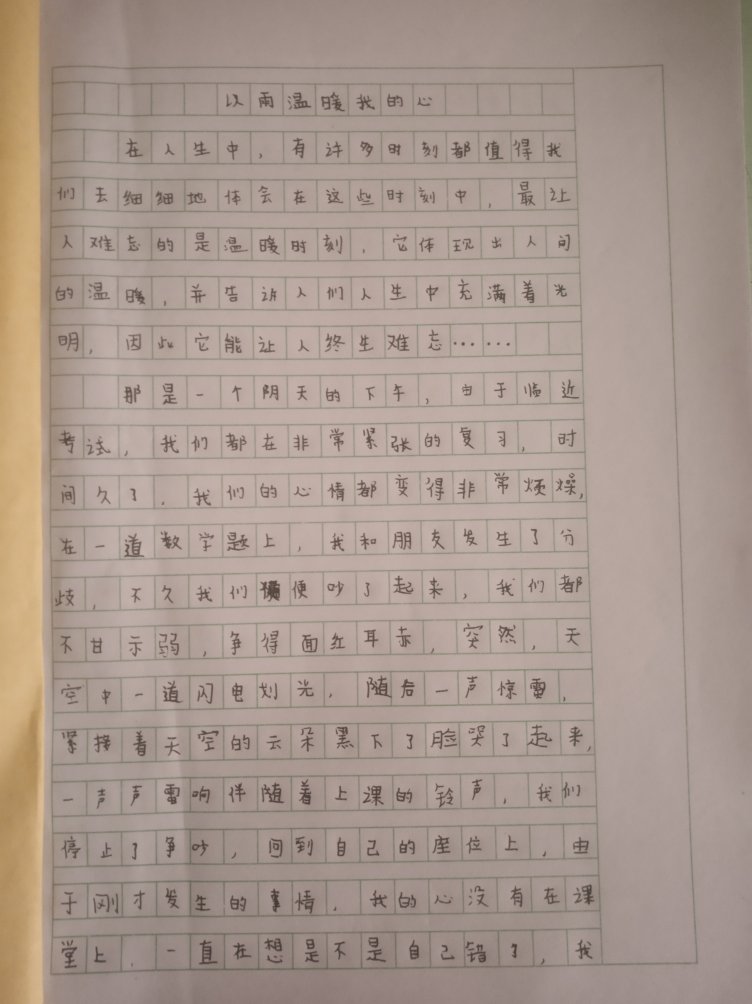 以雨温暖我的心
在人生中，有许多时刻都值得我
们去细细地体会在这些时刻中，最让
人难忘的是温暖时刻，它体现出人间
的温暖，并告诉人们人生中充满着光
明，因此它能让人终生难忘……
那是一个阴天的下午，由于临近
考试，我们都在非常紧张的复习，时
间久了，我们的心情都变得非常烦燥，
在一道数学题上，我和朋友发生了分
歧，不久我们便吵了起来，我们都
不甘示弱，争得面红耳赤，突然，天
空中一道闪电划光，随后一声惊雷，
紧接着天空的云朵黑下了脸哭了起来，
一声声雷响伴随着上课的铃声，我们
停止了争吵，回到自己的座位上，由
于刚才发生的事情，我的心没有在课
堂上，一直在想是不是自己错了，我